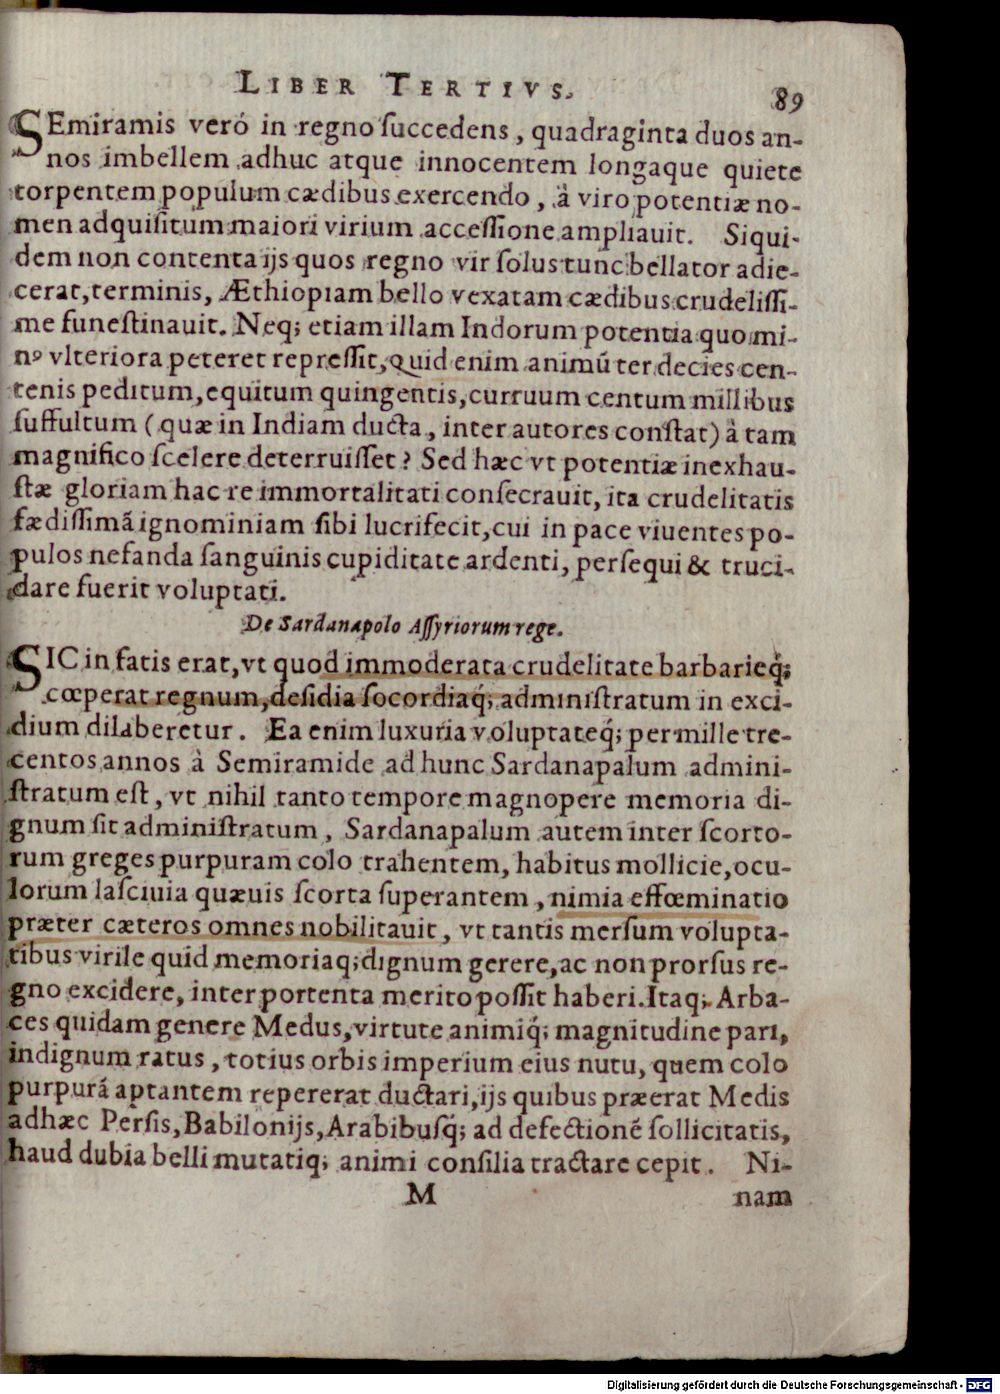 LIBER TERTIVS. 89
SEmiramis veró in regno ſuccedens, quadraginta duos an-
nos imbellem adhuc atque innocentem longaque quiete
torpentem populum cædibus exercendo, à viro potentiæ no-
men adquiſitum maiori virium acceſſione ampliauit. Siqui-
dem non contenta ijs quos regno vir ſolus tunc bellator adie-
cerat, terminis, Æthiopiam bello vexatam cædibus crudeliſſi-
me funeſtinauit. Neq; etiam illam Indorum potentia quo mi-
nꝰ vlteriora peteret repreſſit, quid enim animū ter decies cen-
tenis peditum, equitum quingentis, curruum centum millibus
ſuffultum (quæ in Indiam ducta, inter autores conſtat) à tam
magnifico ſcelere deterruiſſet? Sed hæc vt potentiæ inexhau-
ſtæ gloriam hac re immortalitati conſecrauit, ita crudelitatis
fædiſſimā ignominiam ſibi lucrifecit, cui in pace viuentes po-
pulos nefanda ſanguinis cupiditate ardenti, perſequi & truci-
dare fuerit voluptati.
De Sardanapolo Aſſyriorum rege.
SIC in fatis erat, vt quod immoderata crudelitate barbarieq́;
cœperat regnum, deſidia ſocordiaq́; adminiſtratum in exci-
dium dilaberetur. Ea enim luxuria voluptateq́; per mille tre-
centos annos à Semiramide ad hunc Sardanapalum admini-
ſtratum eſt, vt nihil tanto tempore magnopere memoria di-
gnum ſit adminiſtratum, Sardanapalum autem inter ſcorto-
rum greges purpuram colo trahentem, habitus mollicie, ocu-
lorum laſciuia quæuis ſcorta ſuperantem, nimia effœminatio
præter cæteros omnes nobilitauit, vt tantis merſum volupta-
tibus virile quid memoriaq; dignum gerere, ac non prorſus re-
gno excidere, inter portenta merito poſſit haberi. Itaq; Arba-
ces quidam genere Medus, virtute animiq́; magnitudine pari,
indignum ratus, totius orbis imperium eius nutu, quem colo
purpurā aptantem repererat ductari, ijs quibus præerat Medis
adhæc Perſis, Babilonijs, Arabibuſq́; ad defectionē ſollicitatis,
haud dubia belli mutatiq; animi conſilia tractare cepit. Ni-
M nam
Digitalisierung gefördert durch die Deutsche Forschungsgemeinschaft - DFG